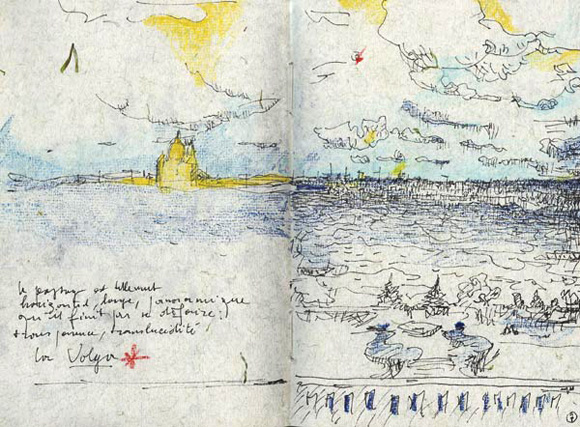 le paysage est tellement
horizontal, large, panoramique
qu'il finit par se
transparence, translucidité
La Volga